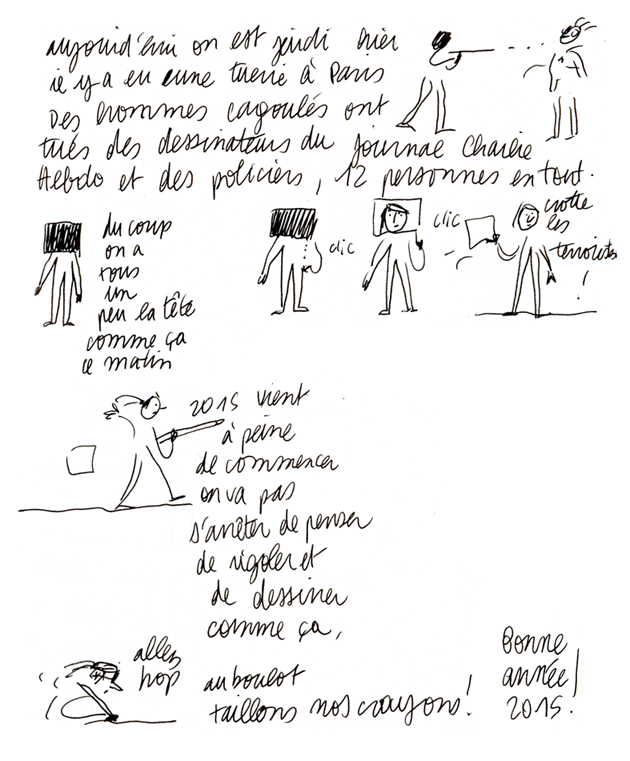 aujourd'hui on est jeudi hier
il y a eu une tuerie à Paris
Des hommes cagoulés ont
tués des dessinateurs du journal Charlie
Hebdo et des policiers, 12 personnes en tout.
du coup
on a
tous
un
peu la tête
comme ça
ce matin
clic
clic
crotte
les
terroristes
!
2015 vient
à peine
de commencer
on va pas
s'arrêter de penser
de rigoler et
de dessiner
comme ça,
allez
hop
au boulot
taillons nos crayons!
Bonne
année!
2015!